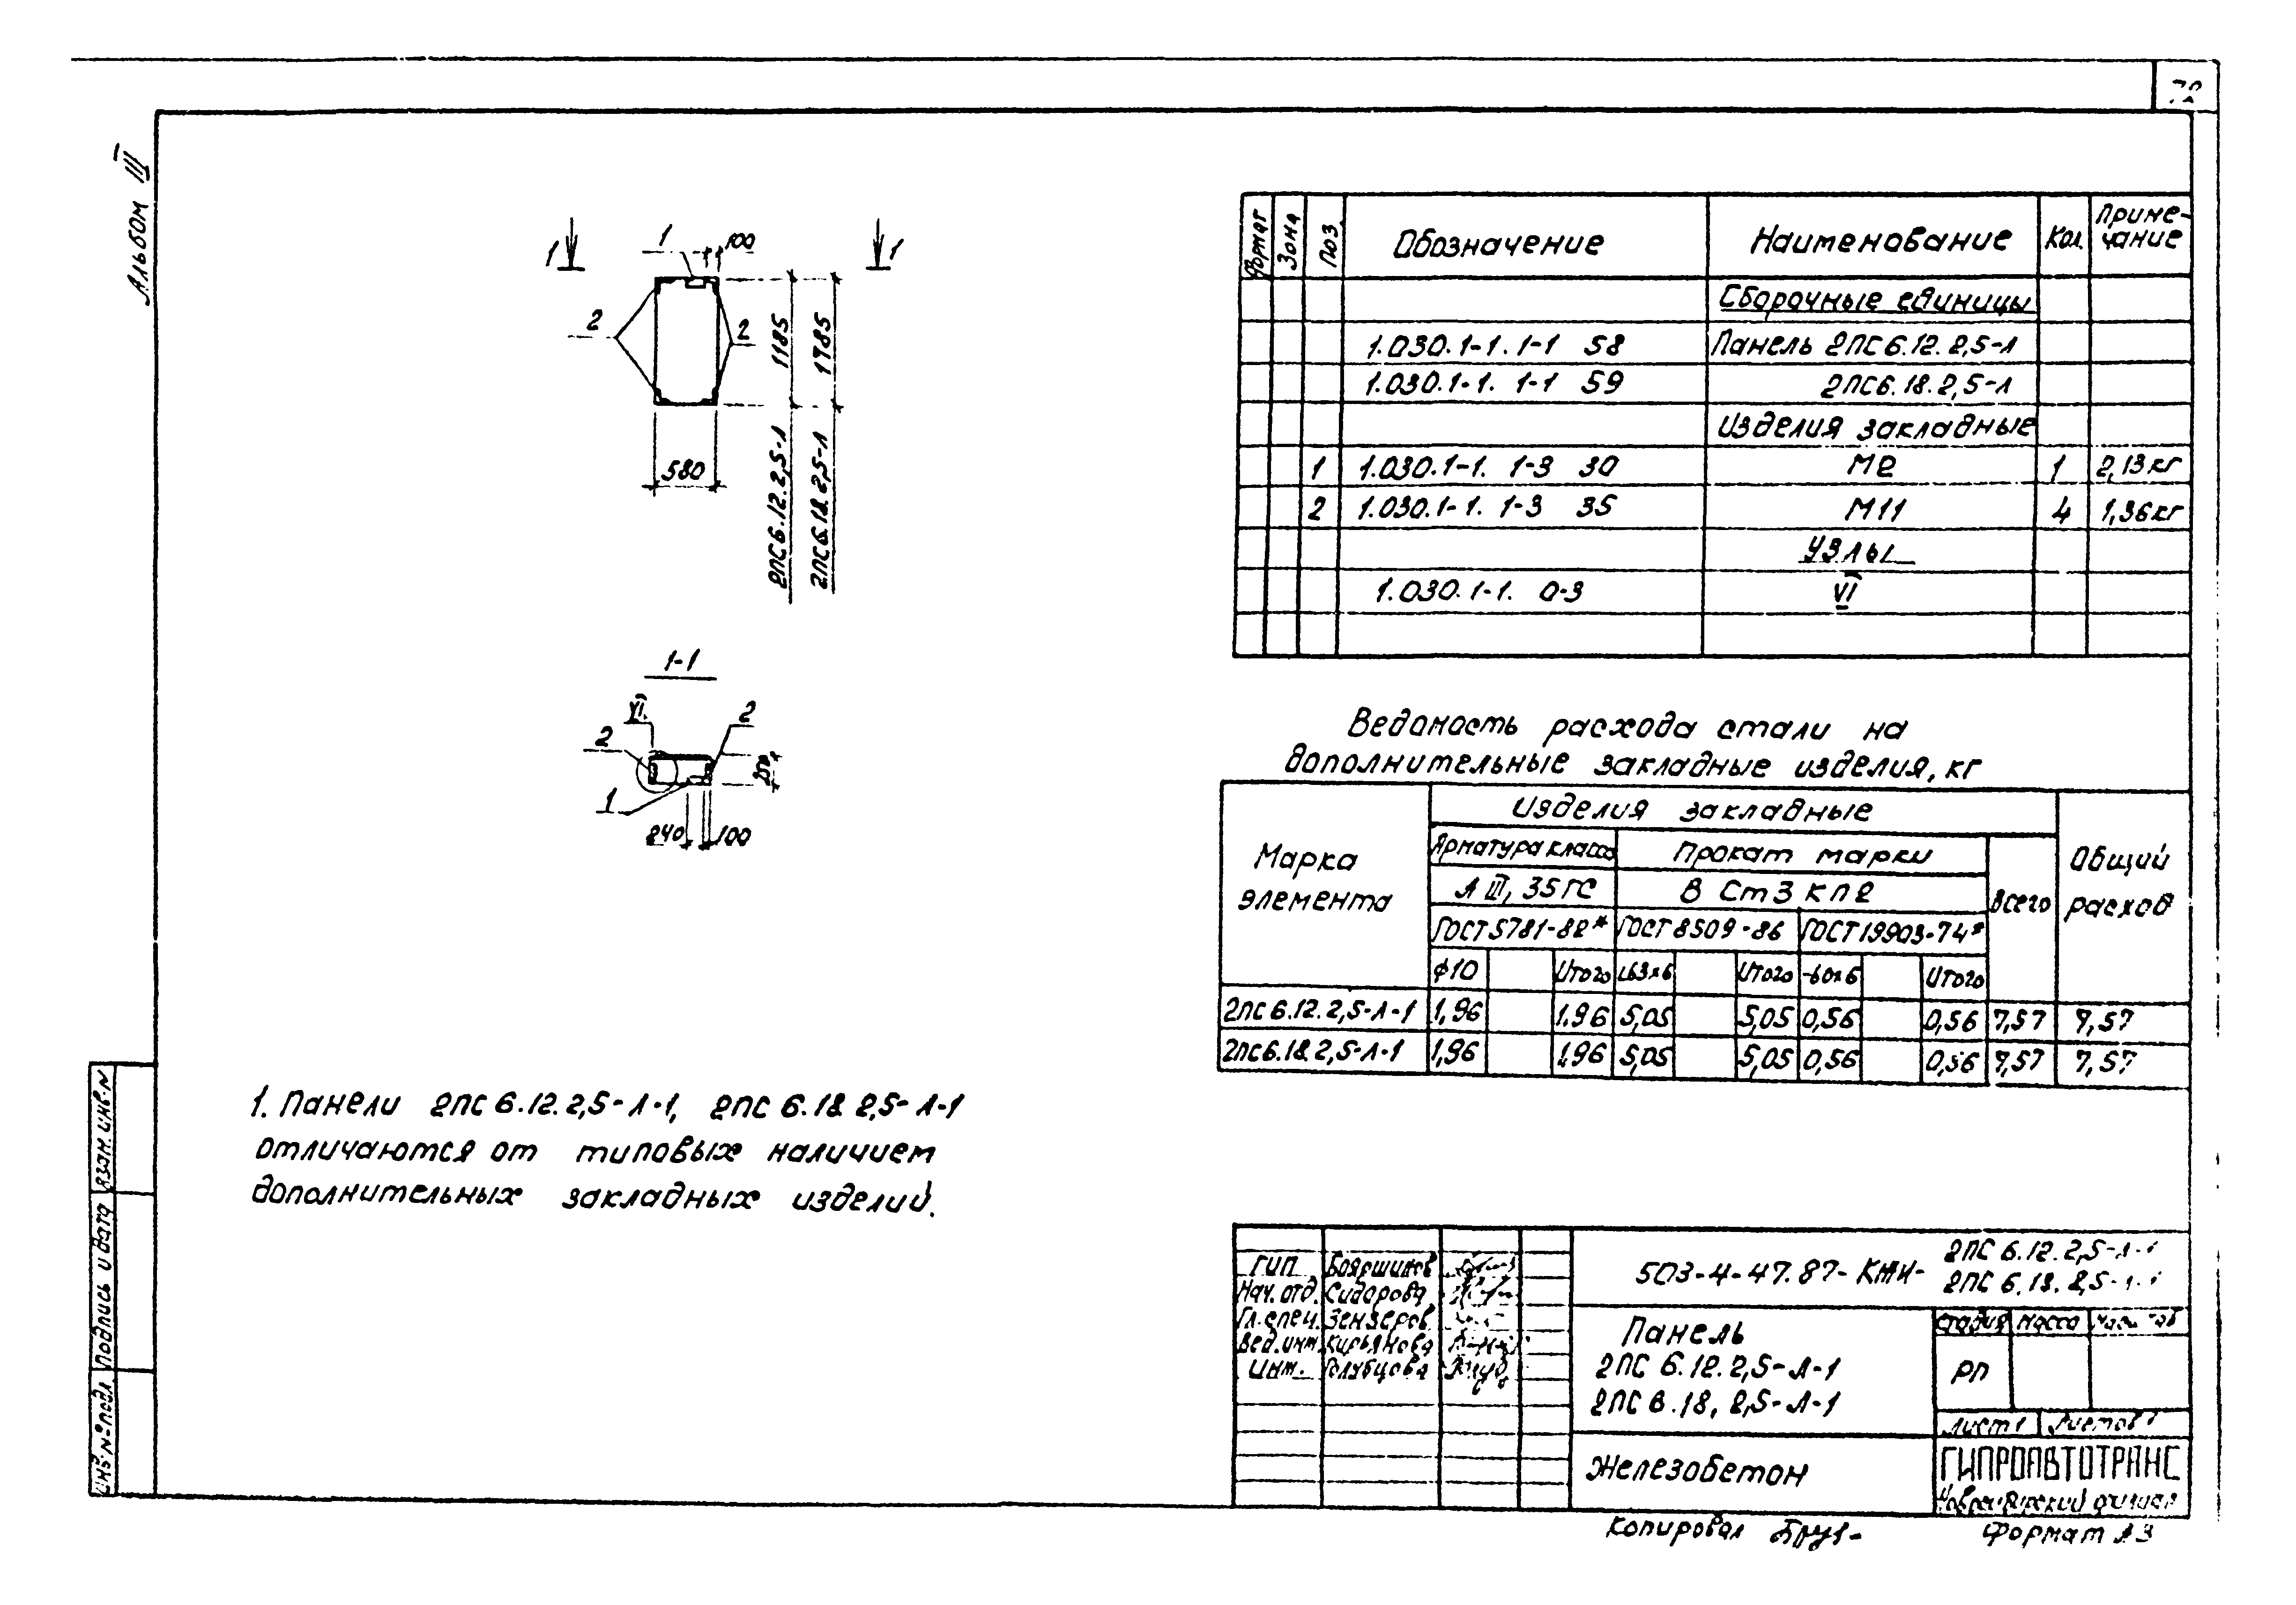 72
Альбом III
1 1
1 100
2 2
1185
1785
580
2ПС6.12.2,5-Л
2ПС6.18.2,5-Л
1-1
VI
2 2
1
240 100
1. Панели 2ПС 6.12.2,5-Л-1, 2ПС 6.18 2,5-Л-1
отличаются от типовых наличием
дополнительных закладных изделий.
Формат Зона Поз. Обозначение Наименование Кол. Приме-
чание
Сборочные единицы
1.030.1-1. 1-1 58 Панель 2ПС6.12.2,5-Л
1.030.1-1. 1-1 59 2ПС6.18.2,5-Л
Изделия закладные
1 1.030.1-1. 1-3 30 М2 1 2,13кг
2 1.030.1-1. 1-3 35 М11 4 1,36кг
Узлы
1.030.1-1. 0-3 VI
Ведомость расхода стали на
дополнительные закладные изделия, кг
Марка
элемента
Изделия закладные
Общий
расход
Арматура класса Прокат марки
Всего
А III, 35ГС В Ст3 КП2
ГОСТ 5781-82* ГОСТ 8509-86 ГОСТ 19903-74*
ф10 Итого L63х6 Итого -60х6 Итого
2ПС 6.12.2,5-Л-1 1,96 1,96 5,05 5,05 0,56 0,56 7,57 7,57
2ПС6.18.2,5-Л-1 1,96 1,96 5,05 5,05 0,56 0,56 7,57 7,57
Взам. инв. N
Подпись и дата
Инв. № подл.
ГИП Бояршинов
Нач. отд. Сидорова
Гл. спец. Зензеров
Вед. инж. Кирьянова
Инж. Голубцова
503-4-47.87-КЖИ-
2ПС 6.12.2,5-Л-1
2ПС 6.18.2,5-Л-1
Панель
2ПС 6.12.2,5-Л-1
2ПС 6.18, 2,5-Л-1
Стадия Масса Масштаб
РП
Лист 1 Листов 1
Железобетон
ГИПРОАВТОТРАНС
Новосибирский филиал
Копировал Формат А3